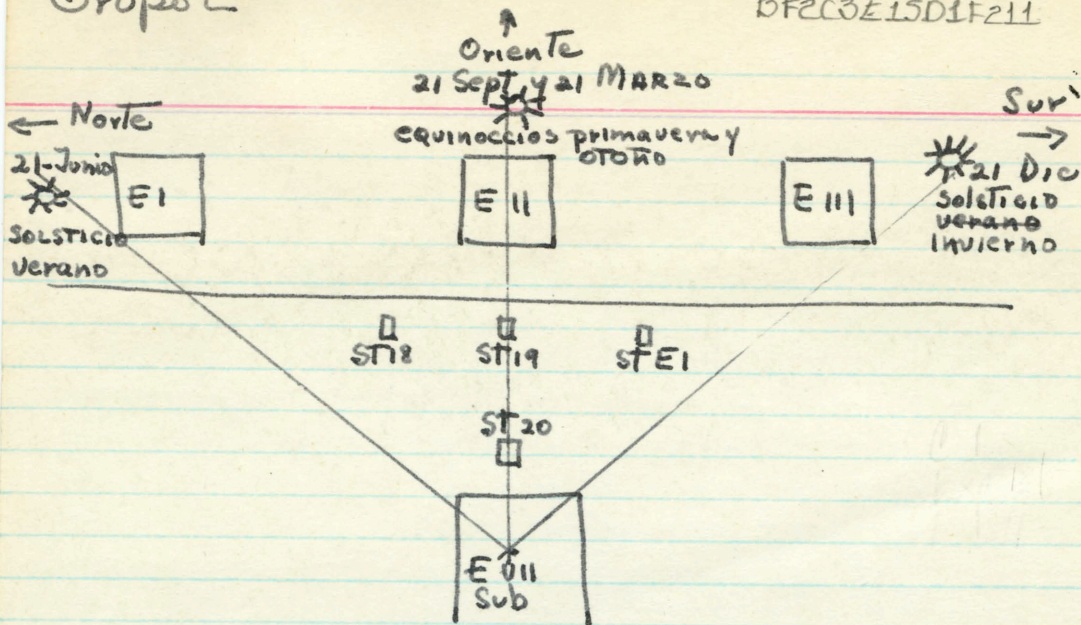 Grupo E
DF2C3E15D1F211
Oriente
21 Sept. y 21 MARZO
equinoccios primavera y
otoño
← Norte
Sur
→
21-Junio
solsticio
verano
E I
E II
E III
21 Dic
solsticio
verano
Invierno
ST18
ST19
ST E1
ST 20
E VII
Sub